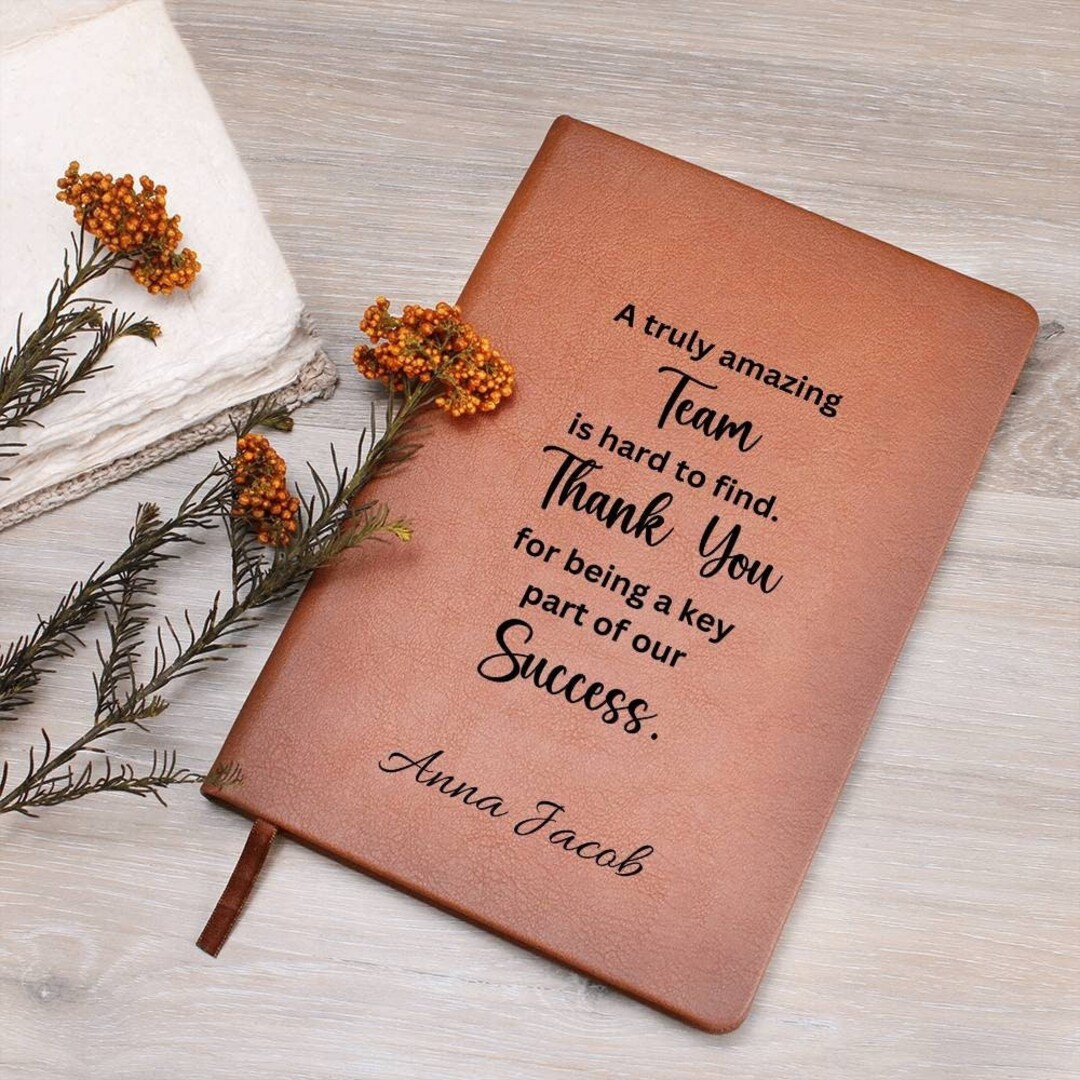 A truly amazing
Team
is hard to find.
Thank You
for being a key
part of our
Success.
Anna Jacob